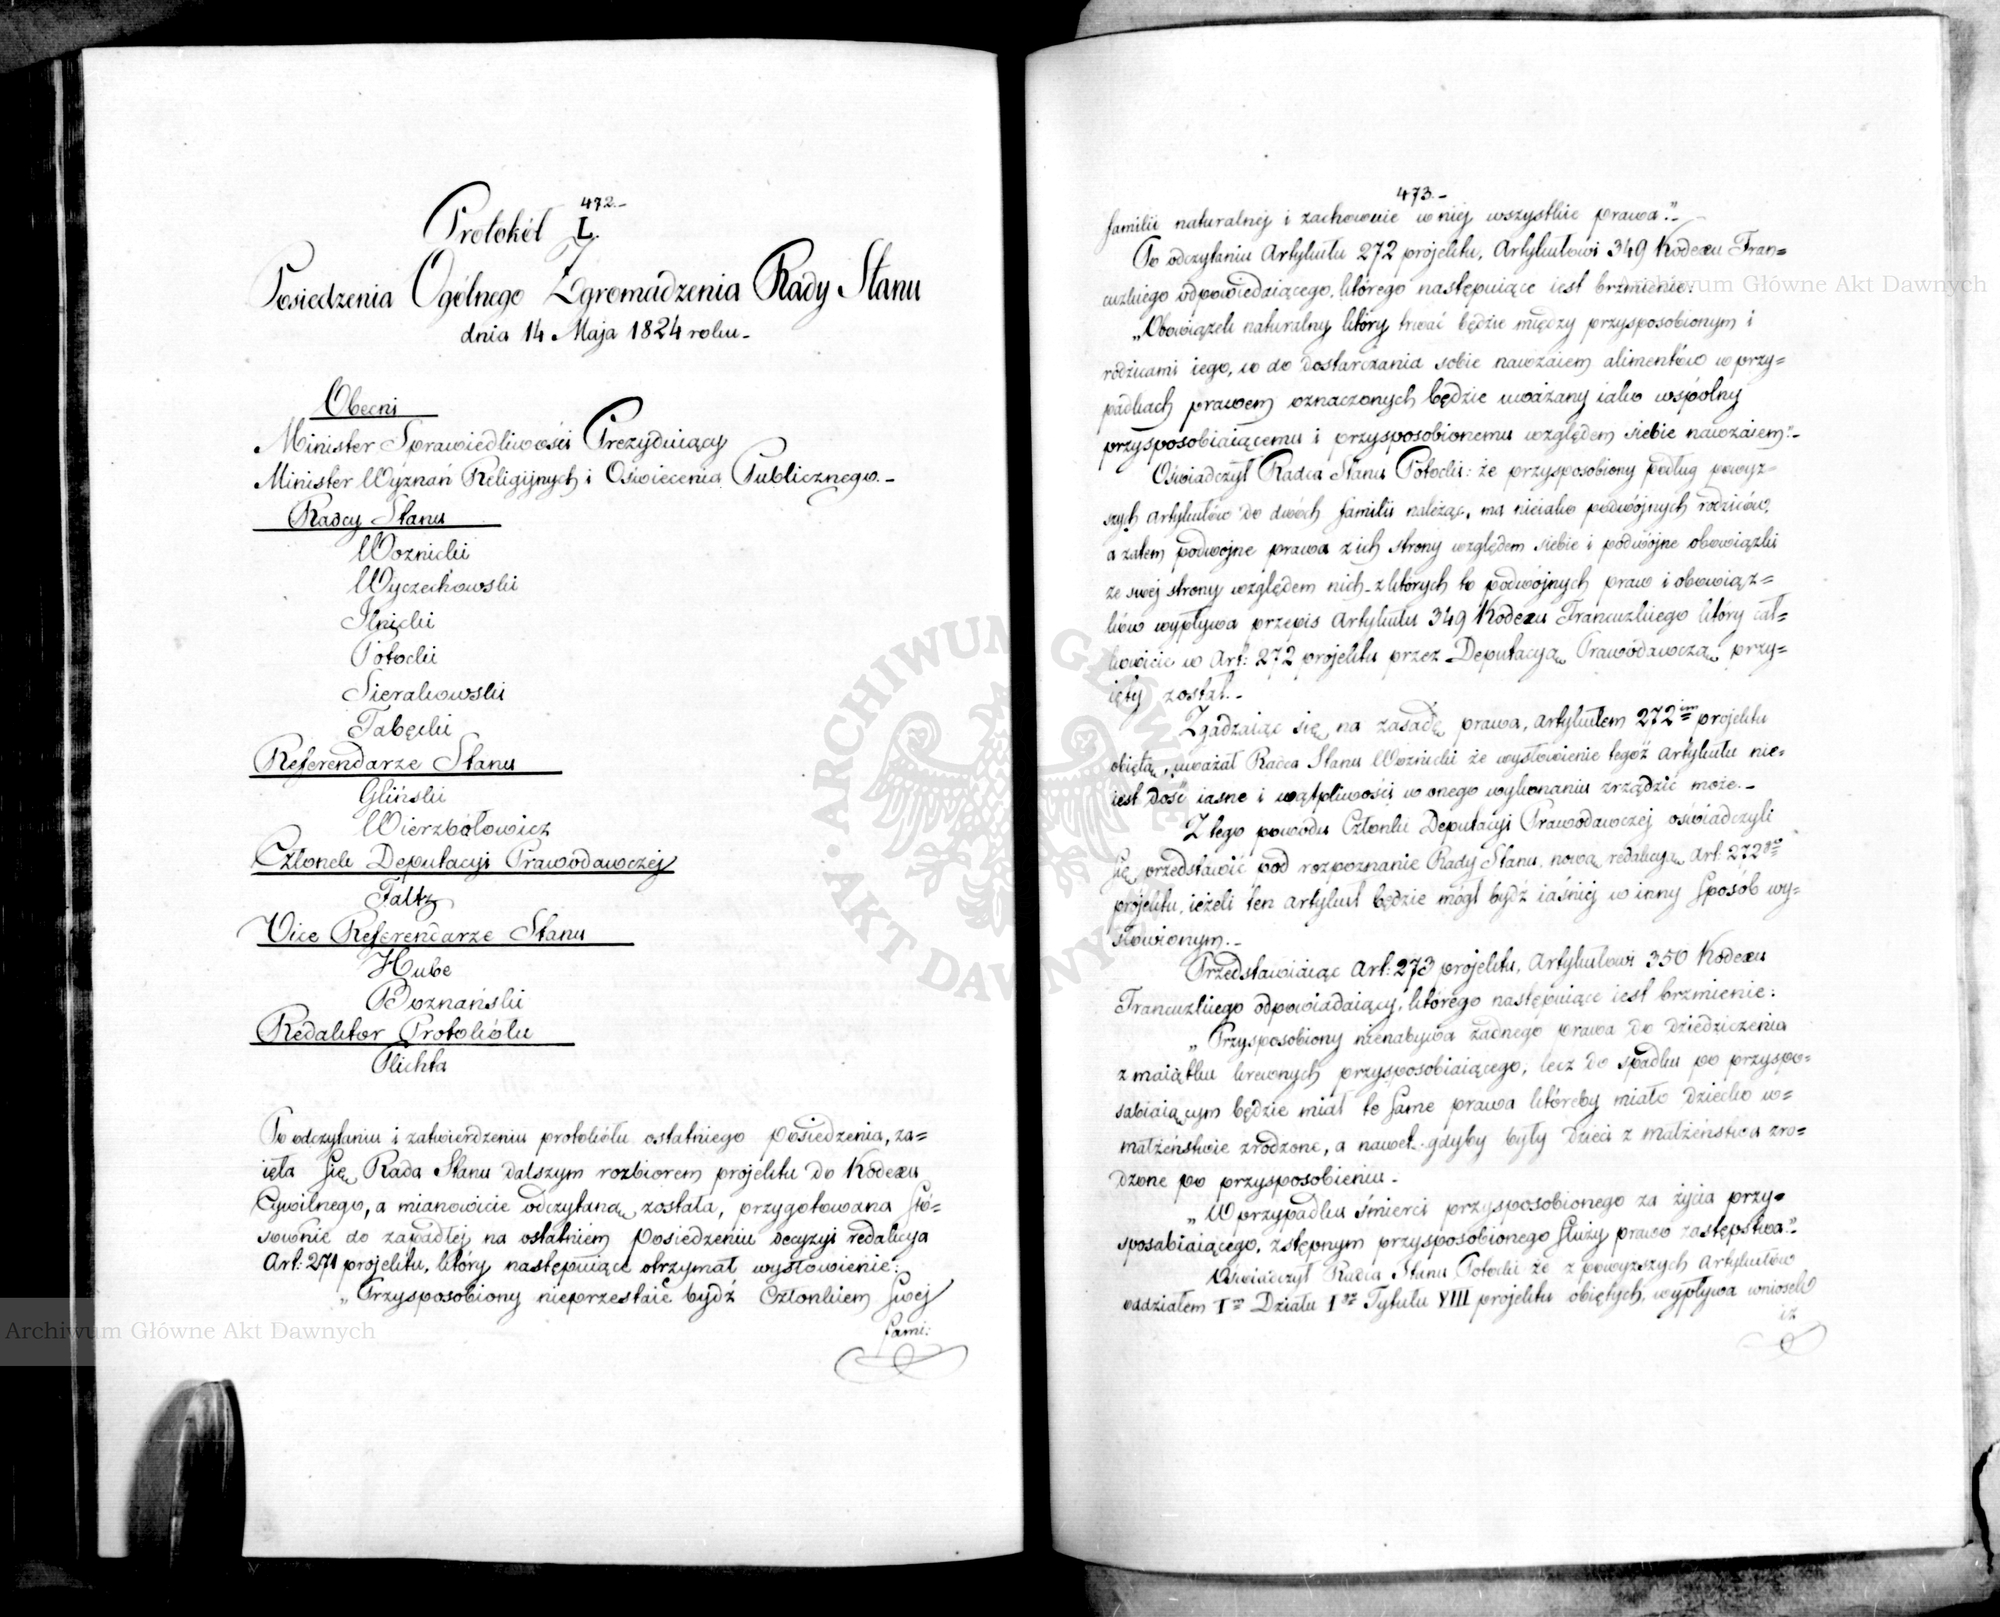 472.-
Protokół L.
Posiedzenia Ogólnego Zgromadzenia Rady Stanu
dnia 14 Maja 1824 roku -
Obecni
Minister Sprawiedliwości Prezyduiący
Minister Wyznań Religijnych i Oświecenia Publicznego. -
Radcy Stanu
Woznicki
Wyczechowski
Ilnicki
Potocki
Sierakowski
Tabęcki
Referendarze Stanu
Gliński
Wierzbołowicz
Członek Deputacyi Prawodawczéj
Faltz
Vice Referendarze Stanu
Hube
Poznański
Redaktor Protokółu
Plichta
Po odczytaniu i zatwierdzeniu protokółu ostatniego posiedzenia, za=
ięła się Rada Stanu dalszym rozbiorem projektu do Kodexu
Cywilnego, a mianowicie odczytaną została, przygotowana sto=
sownie do zapadłej na ostatniem posiedzeniu decyzyi redakcya
Art: 271 projektu, który następuiące otrzymał wysłowienie:
„Przysposobiony nieprzestaie bydź Członkiem swej
fami:
473.-
familii naturalnéj i zachowuie w niéj wszystkie prawa."-
Po odczytaniu Artykułu 272 projektu, Artykułowi 349 Kodexu Fran=
cuzkiego odpowiedaiącego, którego następuiące iest brzmienie:
„Obowiązek naturalny który trwać będzie między przysposobionym i
rodzicami iego, co do dostarczania sobie nawzaiem alimentów w przy=
padkach prawem oznaczonych będzie uważany iako wspólny
przysposobiaiącemu i przysposobionemu względem siebie nawzaiem."-
Oświadczył Radca Stanu Potocki: że przysposobiony podług powyż=
szych artykułów do dwóch familii należąc, ma nieiako podwójnych rodziców,
a zatem podwójne prawa z ich strony względem siebie i podwójne obowiązki
ze swéj strony względem nich - z których to podwójnych praw i obowiąz=
ków wypływa przepis Artykułu 349 Kodexu Francuzkiego który cał=
kowicie w Art: 272 projektu przez Deputacyą Prawodawczą przy=
ięty został. -
Zgadzaiąc się na zasadę prawa, artykułem 272im projektu
obiętą, uważał Radca Stanu Woznicki że wysłowienie tegoż artykułu nie=
iest dość iasne i wątpliwości w onego wykonaniu zrządzić może. -
Z tego powodu Członki Deputacyi Prawodawczéj oświadczyli
się przedstawić pod rozpoznanie Rady Stanu nową redakcyą Art: 272go
projektu, ieżeli ten artykuł będzie mógł bydź iaśniéj w inny sposób wy=
słowionym. -
Przedstawiaiąc Art: 273 projektu, Artykułowi 350 Kodexu
Francuzkiego odpowiadaiący, którego następuiące iest brzmienie:
„Przysposobiony nienabywa żadnego prawa do dziedziczenia
z maiątku krewnych przysposobiaiącego; lecz do spadku po przyspo=
sabiaiącym będzie miał te same prawa któreby miało dziecko w=
małżeństwie zrodzone, a nawet gdyby były dzieci z małżeństwa zro=
dzone po przysposobieniu -
„W przypadku śmierci przysposobionego za życia przy=
sposabiaiącego, zstępnym przysposobionego służy prawo zastępstwa."-
Oświadczył Radca Stanu Potocki że z powyższych artykułów
oddziałem Im Działu 1go Tytułu VIII projektu obiętych, wypływa wniosek
iż
Archiwum Główne Akt Dawnych
Archiwum Główne Akt Dawnych
ARCHIWUM GŁÓWNE AKT DAWNYCH